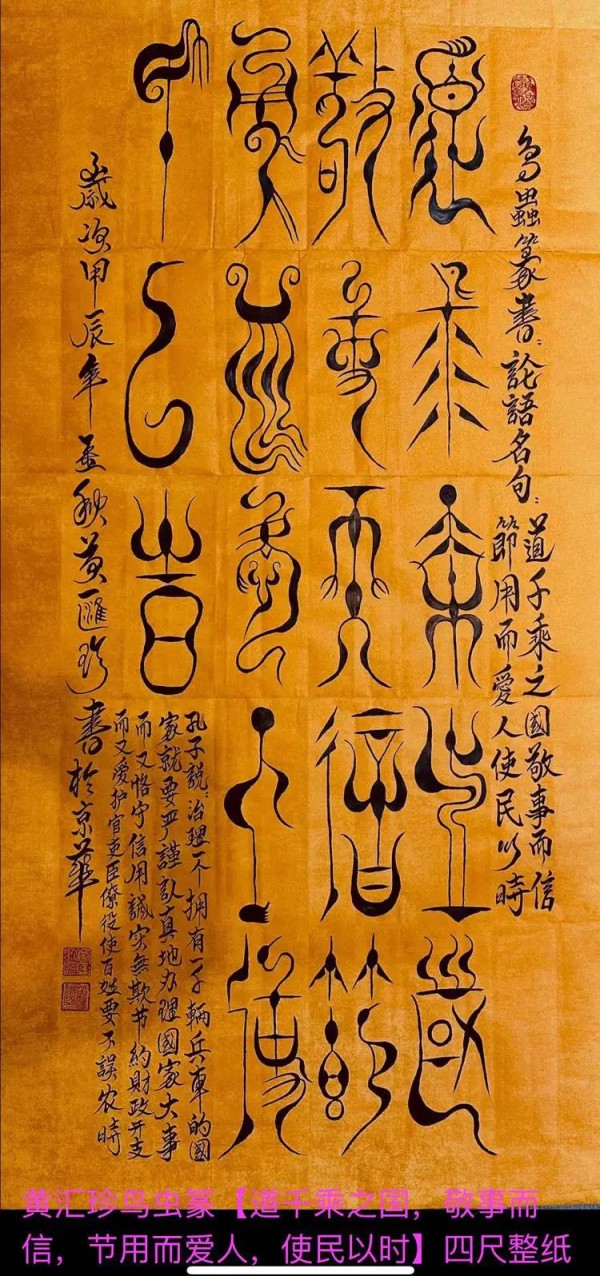 鳥蟲篆書：論語名句：道千乘之國敬事而信
節用而愛人使民以時
道千乘之國
敬事而信節
用而愛人使
民以時
孔子說：治理一个拥有一千輛兵車的國
家就要严謹認真地办理國家大事
而又恪守信用誠实無欺节約財政开支
而又爱护官吏臣僚役使百姓要不誤农時
歲次甲辰年孟秋黄匯珍書於京華
黄汇珍鸟虫篆【道千乘之国，敬事而
信，节用而爱人，使民以时】四尺整纸